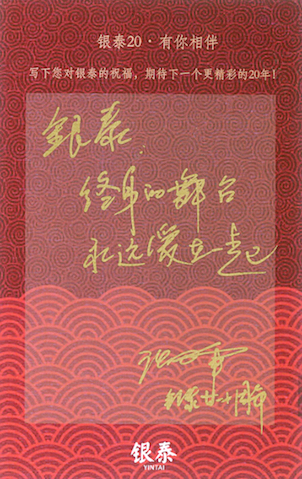 银泰20·有你相伴
写下您对银泰的祝福，期待下一个更精彩的20年！
银泰:
终身的舞台
永远爱在一起
银泰
YINTAI